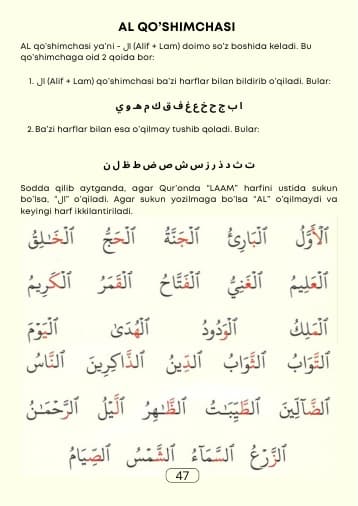 AL QO'SHIMCHASI
AL qo'shimchasi ya'ni - ال (Alif + Lam) doimo so'z boshida keladi. Bu
qo'shimchaga oid 2 qoida bor:
1. ال (Alif + Lam) qo'shimchasi ba'zi harflar bilan bildirib o'qiladi. Bular:
ا ب ج ح خ ع غ ف ق ك م ه و ي
2. Ba'zi harflar bilan esa o'qilmay tushib qoladi. Bular:
ت ث د ذ ر ز س ش ص ض ط ظ ل ن
Sodda qilib aytganda, agar Qur'onda "LAAM" harfini ustida sukun
bo'lsa, "ال" o'qiladi. Agar sukun yozilmaga bo'lsa "AL" o'qilmaydi va
keyingi harf ikkilantiriladi.
ٱلْأَوَّلُ ٱلْبَارِئُ ٱلْجَنَّةُ ٱلْحَجُّ ٱلْخَـٰلِقُ
ٱلْعَلِيمُ ٱلْغَنِيُّ ٱلْفَتَّاحُ ٱلْقَمَرُ ٱلْكَرِيمُ
ٱلْمَلِكُ ٱلْوَدُودُ ٱلْهُدَىٰ ٱلْيَوْمَ
ٱلتَّوَابُ ٱلثَّوَابُ ٱلدِّينُ ٱلذَّاكِرِينَ ٱلنَّاسُ
ٱلضَّآلِّينَ ٱلطَّيِّبَـٰتُ ٱلظَّـٰهِرُ ٱلَّيْلُ ٱلرَّحْمَـٰنُ
ٱلزَّرْعُ ٱلسَّمَآءُ ٱلشَّمْسُ ٱلصِّيَامُ
47